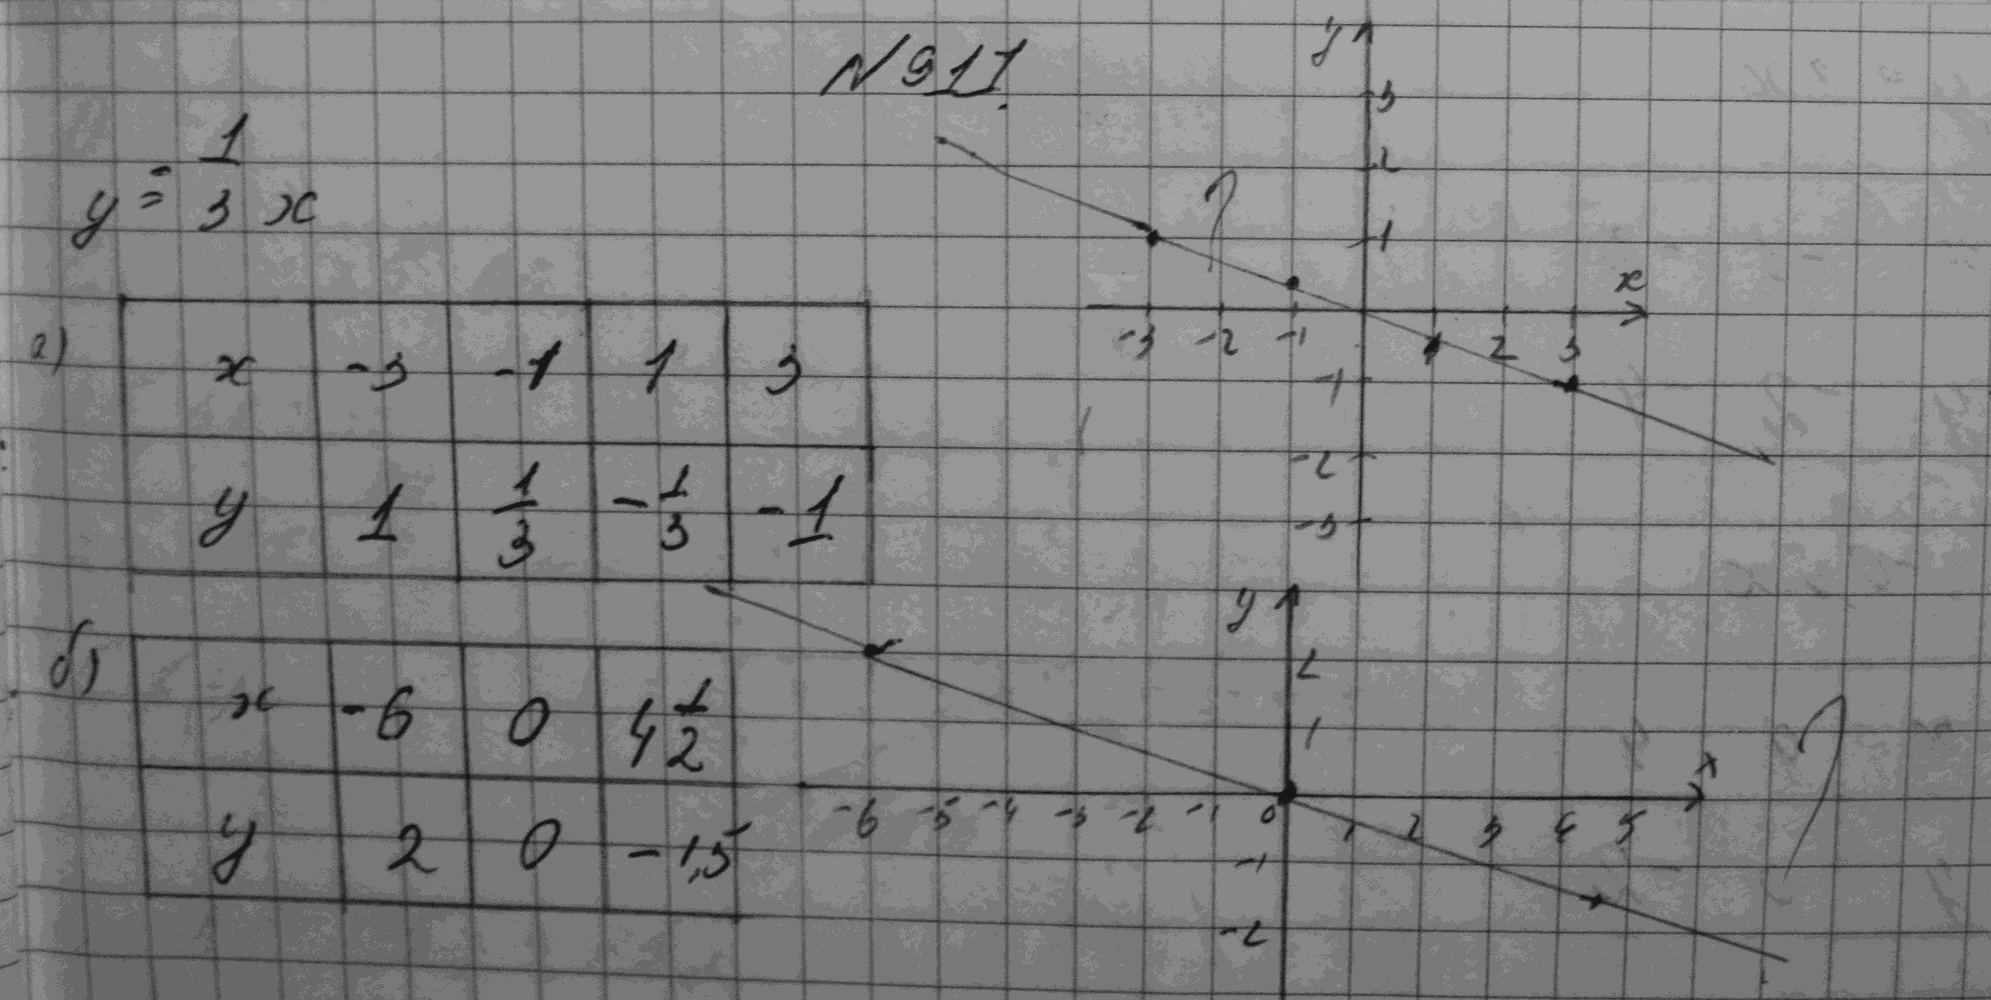 N 911.
y = 1/3 x
а)
x -3 -1 1 3
y 1 1/3 -1/3 -1
y
3
2
1
x
-3 -2 -1 1 2 3
-1
-2
-3
?
б)
x -6 0 4 1/2
y 2 0 -1,5
y
2
1
x
-6 -5 -4 -3 -2 -1 0 1 2 3 4 5
-1
-2
?